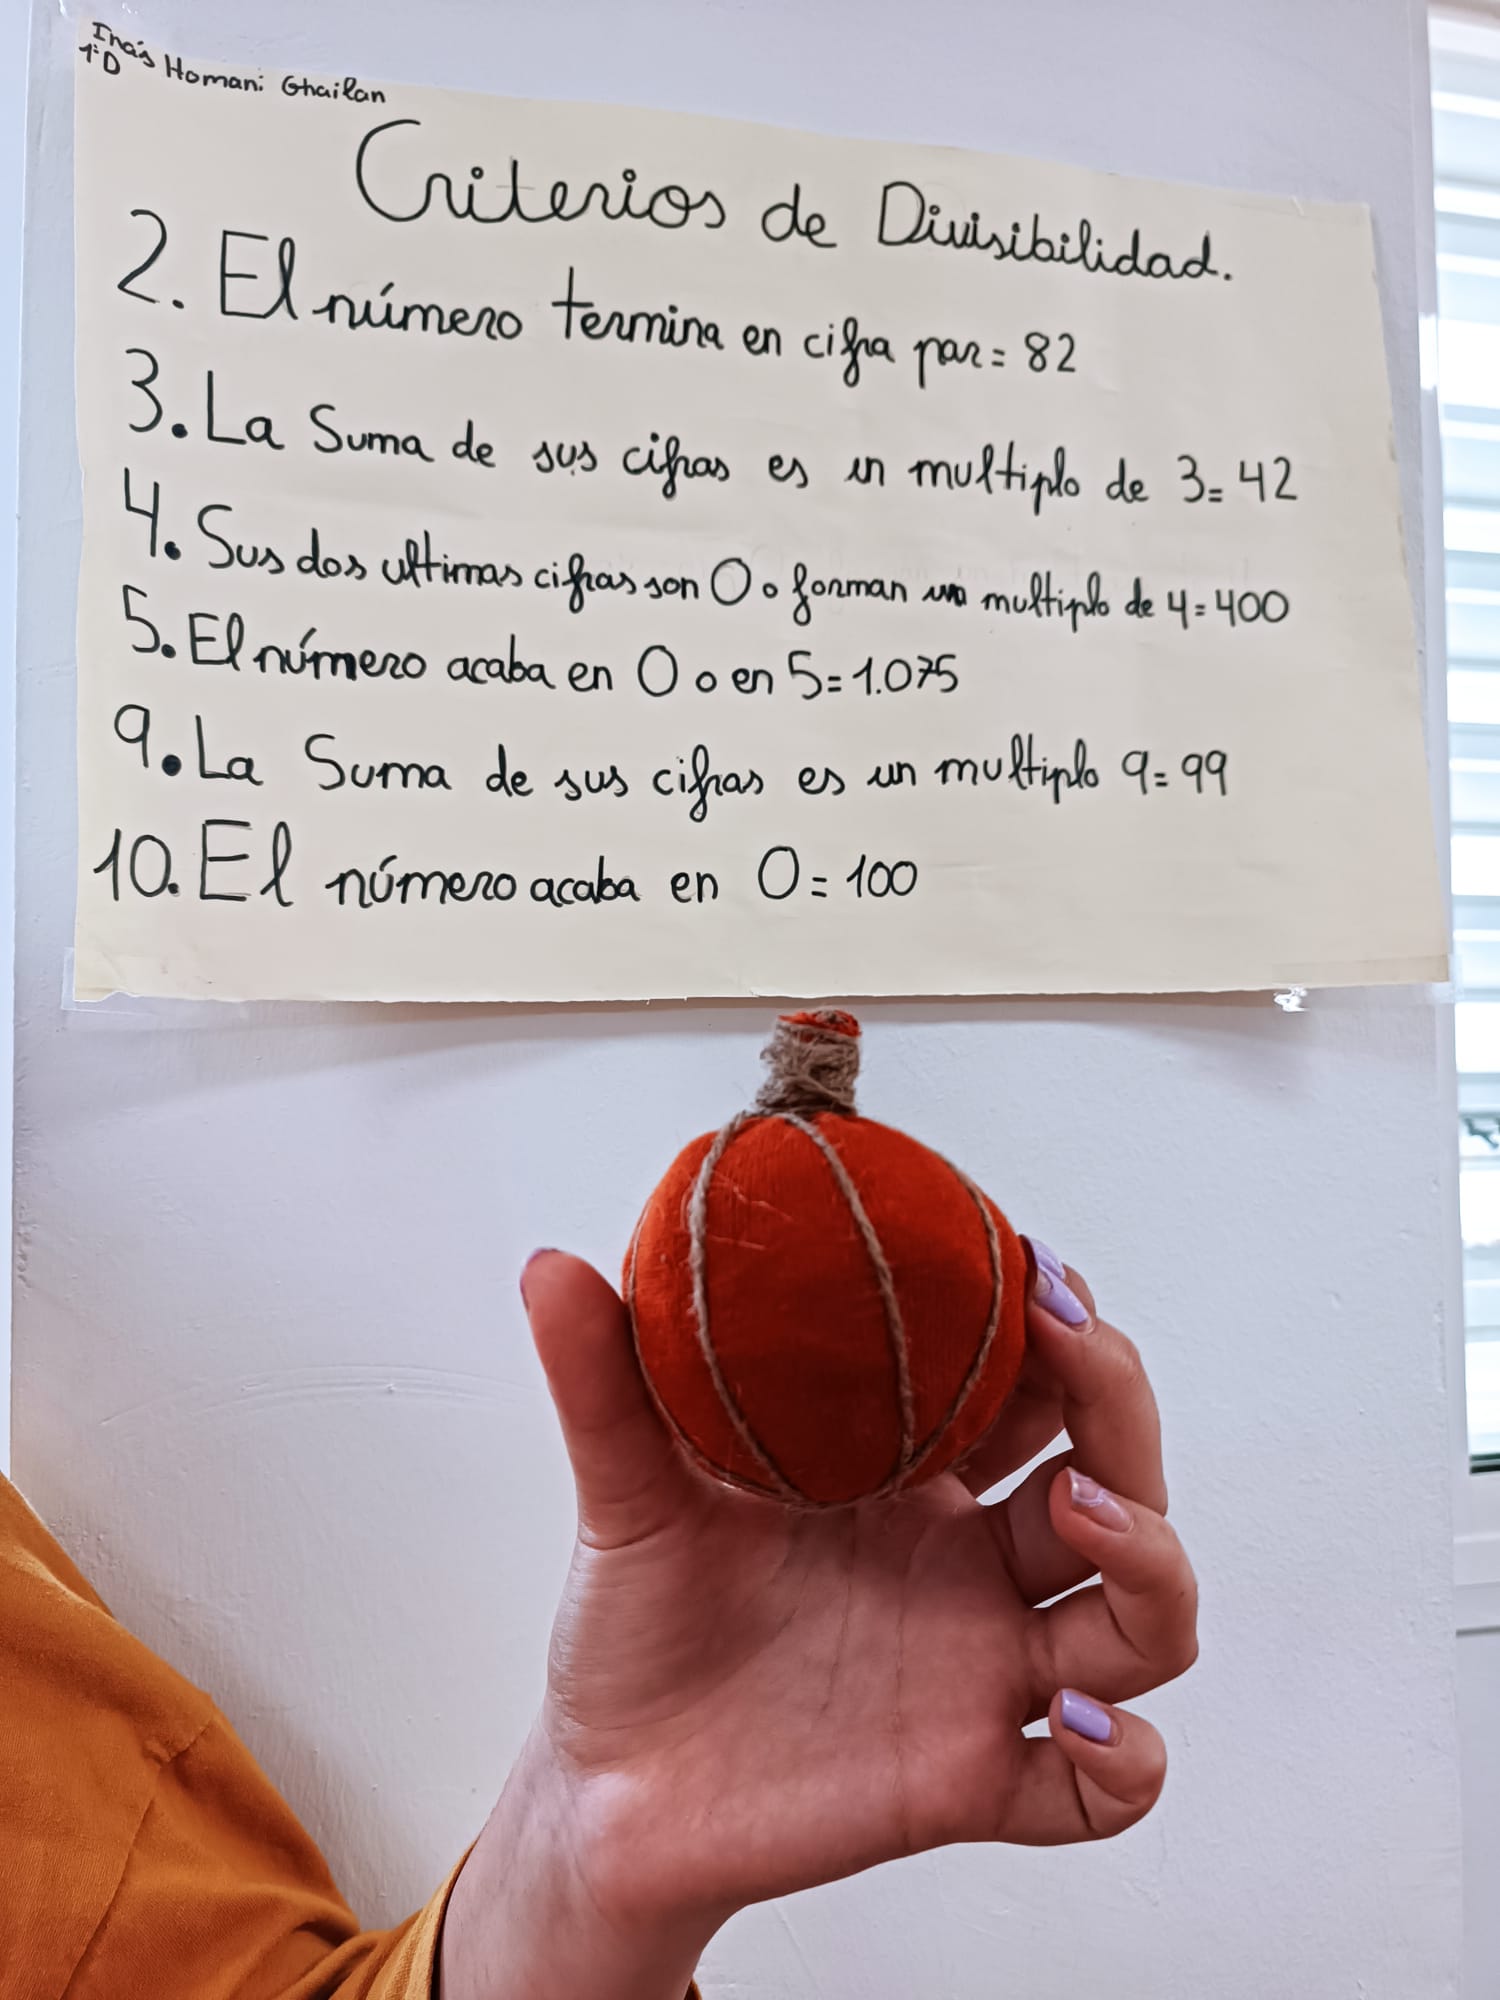 Inas Homani Ghailan
1ºD
Criterios de Divisibilidad.
2. El número termina en cifra par = 82
3. La Suma de sus cifras es un multiplo de 3 = 42
4. Sus dos ultimas cifras son 0 o forman un multiplo de 4 = 400
5. El número acaba en 0 o en 5 = 1.075
9. La Suma de sus cifras es un multiplo 9 = 99
10. El número acaba en 0 = 100